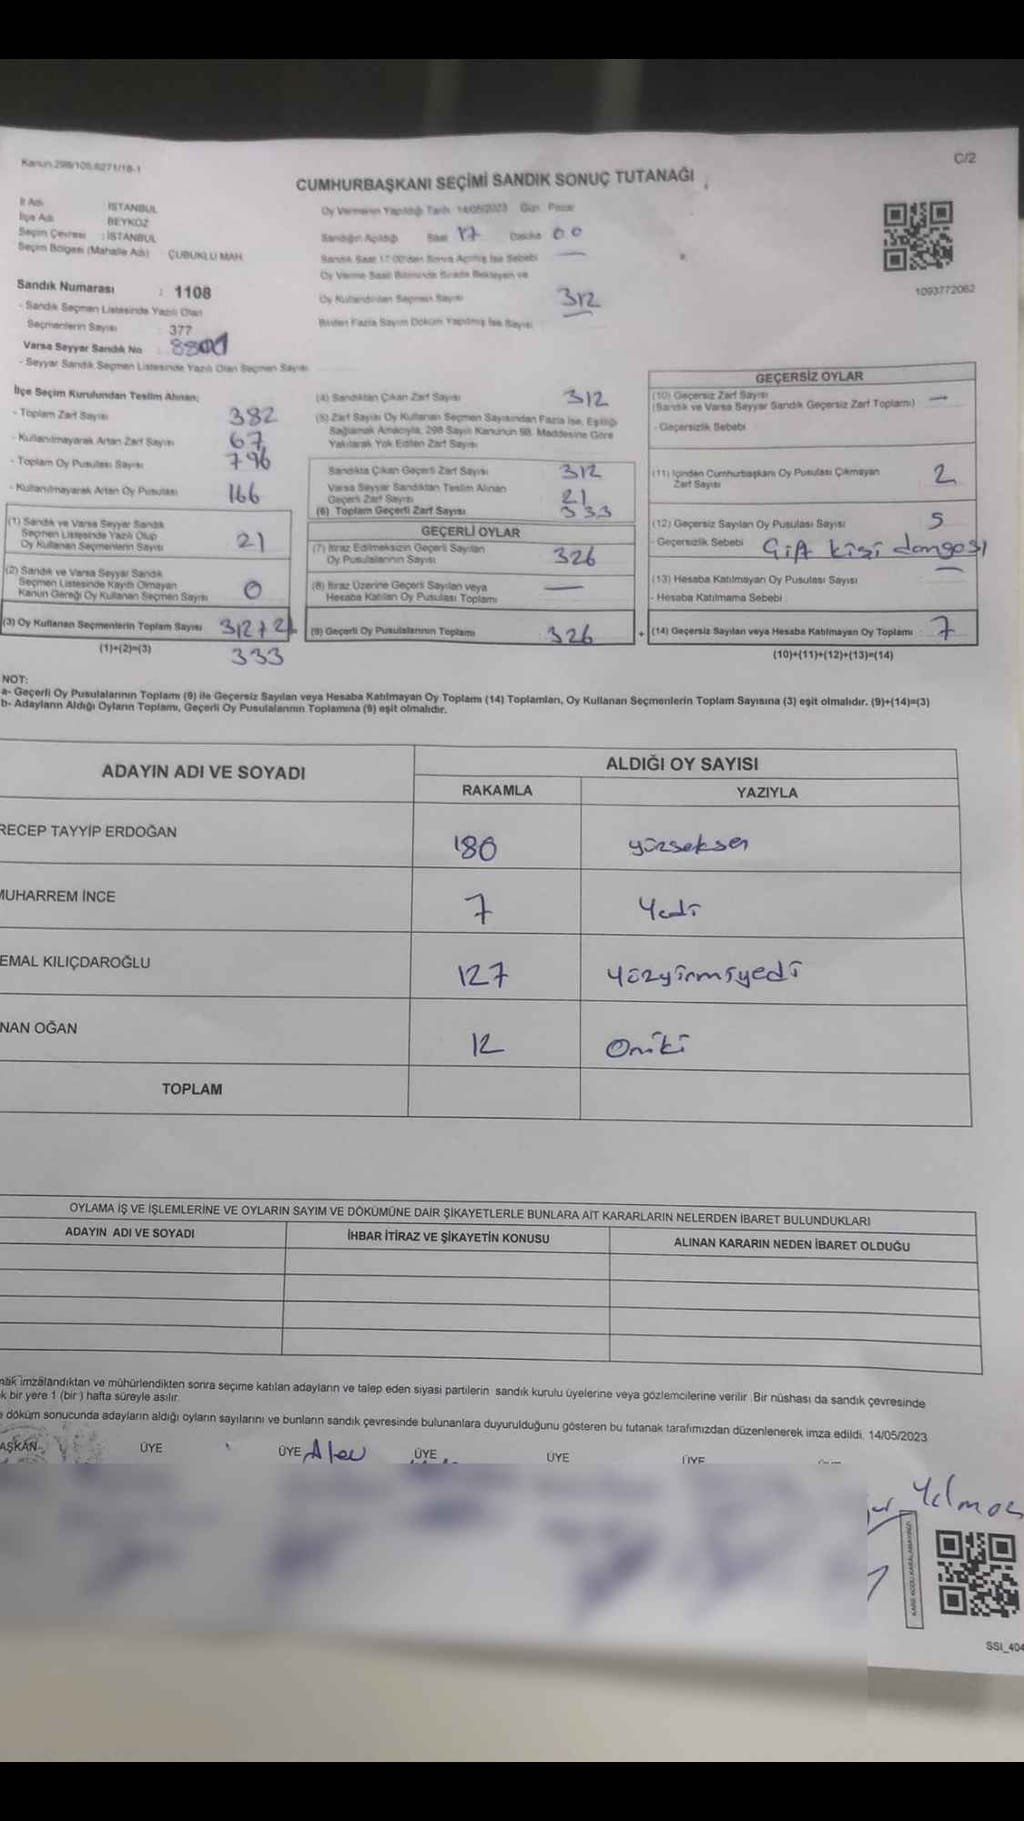 Kanun 298/105.6271/18-1
C/2
CUMHURBAŞKANI SEÇİMİ SANDIK SONUÇ TUTANAĞI
İl Adı : İSTANBUL
İlçe Adı BEYKOZ
Seçim Çevresi : İSTANBUL
Seçim Bölgesi (Mahalle Adı) ÇUBUKLU MAH.
Sandık Numarası : 1108
- Sandık Seçmen Listesinde Yazılı Olan
Seçmenlerin Sayısı 377
Varsa Seyyar Sandık No
- Seyyar Sandık Seçmen Listesinde Yazılı Olan Seçmen Sayısı
Oy Vermenin Yapıldığı Tarih 14/05/2023 Gün Pazar
Sandığın Açıldığı Saat 17 Dakika 00
Sandık Saat 17:00'den Sonra Açılmış İse Sebebi
Oy Verme Saati Bitiminde Sırada Bekleyen ve
Oy Kullandırılan Seçmen Sayısı 312
Birden Fazla Sayım Döküm Yapılmış İse Sayısı
1093772062
İlçe Seçim Kurulundan Teslim Alınan;
- Toplam Zarf Sayısı 382
- Kullanılmayarak Artan Zarf Sayısı 67
- Toplam Oy Pusulası Sayısı 796
- Kullanılmayarak Artan Oy Pusulası 166
(1) Sandık ve Varsa Seyyar Sandık
Seçmen Listesinde Yazılı Olup
Oy Kullanan Seçmenlerin Sayısı 21
(2) Sandık ve Varsa Seyyar Sandık
Seçmen Listesinde Kayıtlı Olmayan
Kanun Gereği Oy Kullanan Seçmen Sayısı 0
(3) Oy Kullanan Seçmenlerin Toplam Sayısı 312+21
(1)+(2)=(3) 333
(4) Sandıktan Çıkan Zarf Sayısı 312
(5) Zarf Sayısı Oy Kullanan Seçmen Sayısından Fazla İse, Eşitliği
Sağlamak Amacıyla, 298 Sayılı Kanunun 98. Maddesine Göre
Yakılarak Yok Edilen Zarf Sayısı
Sandıkta Çıkan Geçerli Zarf Sayısı 312
Varsa Seyyar Sandıktan Teslim Alınan
Geçerli Zarf Sayısı 21
(6) Toplam Geçerli Zarf Sayısı 333
GEÇERLİ OYLAR
(7) İtiraz Edilmeksizin Geçerli Sayılan
Oy Pusulalarının Sayısı 326
(8) İtiraz Üzerine Geçerli Sayılan veya
Hesaba Katılan Oy Pusulası Toplamı —
(9) Geçerli Oy Pusulalarının Toplamı 326
GEÇERSİZ OYLAR
(10) Geçersiz Zarf Sayısı —
(Sandık ve Varsa Seyyar Sandık Geçersiz Zarf Toplamı)
- Geçersizlik Sebebi
(11) İçinden Cumhurbaşkanı Oy Pusulası Çıkmayan
Zarf Sayısı 2
(12) Geçersiz Sayılan Oy Pusulası Sayısı 5
- Geçersizlik Sebebi Çift kişi damgası
(13) Hesaba Katılmayan Oy Pusulası Sayısı —
- Hesaba Katılmama Sebebi
+ (14) Geçersiz Sayılan veya Hesaba Katılmayan Oy Toplamı 7
(10)+(11)+(12)+(13)=(14)
NOT:
a- Geçerli Oy Pusulalarının Toplamı (9) ile Geçersiz Sayılan veya Hesaba Katılmayan Oy Toplamı (14) Toplamları, Oy Kullanan Seçmenlerin Toplam Sayısına (3) eşit olmalıdır. (9)+(14)=(3)
b- Adayların Aldığı Oyların Toplamı, Geçerli Oy Pusulalarının Toplamına (9) eşit olmalıdır.
ADAYIN ADI VE SOYADI
ALDIĞI OY SAYISI
RAKAMLA YAZIYLA
RECEP TAYYİP ERDOĞAN 180 yüzseksen
MUHARREM İNCE 7 Yedi
EMAL KILIÇDAROĞLU 127 Yüzyirmiyedi
NAN OĞAN 12 Oniki
TOPLAM
OYLAMA İŞ VE İŞLEMLERİNE VE OYLARIN SAYIM VE DÖKÜMÜNE DAİR ŞİKAYETLERLE BUNLARA AİT KARARLARIN NELERDEN İBARET BULUNDUKLARI
ADAYIN ADI VE SOYADI İHBAR İTİRAZ VE ŞİKAYETİN KONUSU ALINAN KARARIN NEDEN İBARET OLDUĞU
nak imzalandıktan ve mühürlendikten sonra seçime katılan adayların ve talep eden siyasi partilerin sandık kurulu üyelerine veya gözlemcilerine verilir .Bir nüshası da sandık çevresinde
k bir yere 1 (bir ) hafta süreyle asılır.
döküm sonucunda adayların aldığı oyların sayılarını ve bunların sandık çevresinde bulunanlara duyurulduğunu gösteren bu tutanak tarafımızdan düzenlenerek imza edildi. 14/05/2023
AŞKAN ÜYE ÜYE ÜYE ÜYE ÜYE
Yılmaz
SSI_404